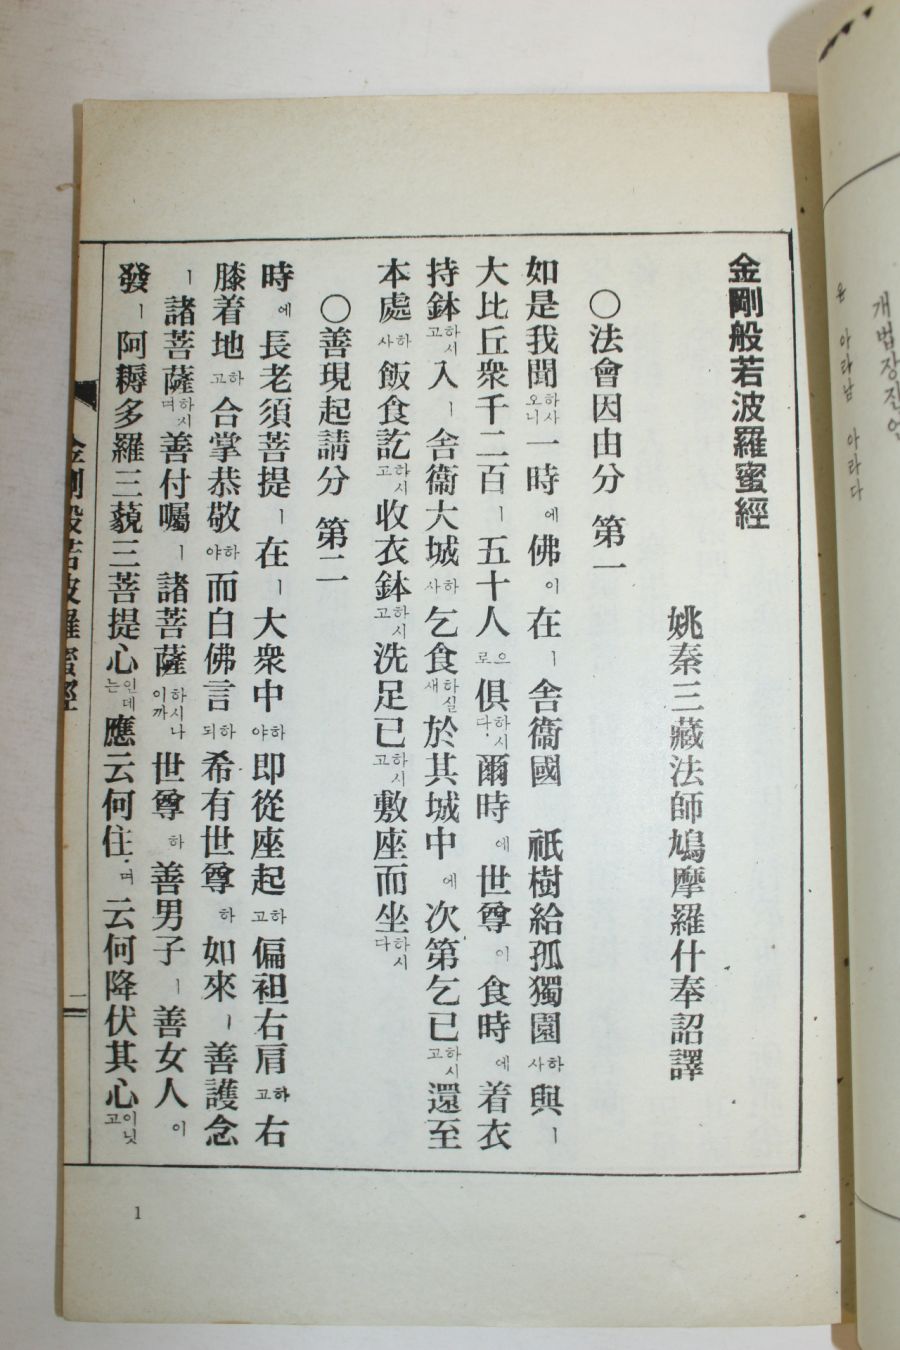 金剛般若波羅蜜經
姚秦三藏法師鳩摩羅什奉詔譯
○法會因由分 第一
如是我聞하사오니一時에佛이在ㅣ舍衞國 祇樹給孤獨園하사與ㅣ
大比丘衆千二百ㅣ五十人으로俱하시다.爾時에世尊이食時에着衣
持鉢하시고入ㅣ舍衞大城하사乞食하실새於其城中에次第乞已하시고還至
本處하사飯食訖하시고收衣鉢하시고洗足已하시고敷座而坐하시다
○善現起請分 第二
時에長老須菩提ㅣ在ㅣ大衆中하야即從座起하고偏袒右肩하고右
膝着地하고合掌恭敬하야而白佛言하되希有世尊하如來ㅣ善護念
ㅣ諸菩薩하시며善付囑ㅣ諸菩薩하시나이까世尊하善男子ㅣ善女人이
發ㅣ阿耨多羅三藐三菩提心인데는應云何住며云何降伏其心이닛고
金剛般若波羅蜜經
一
1
개법장진언
옴 아라남 아라다